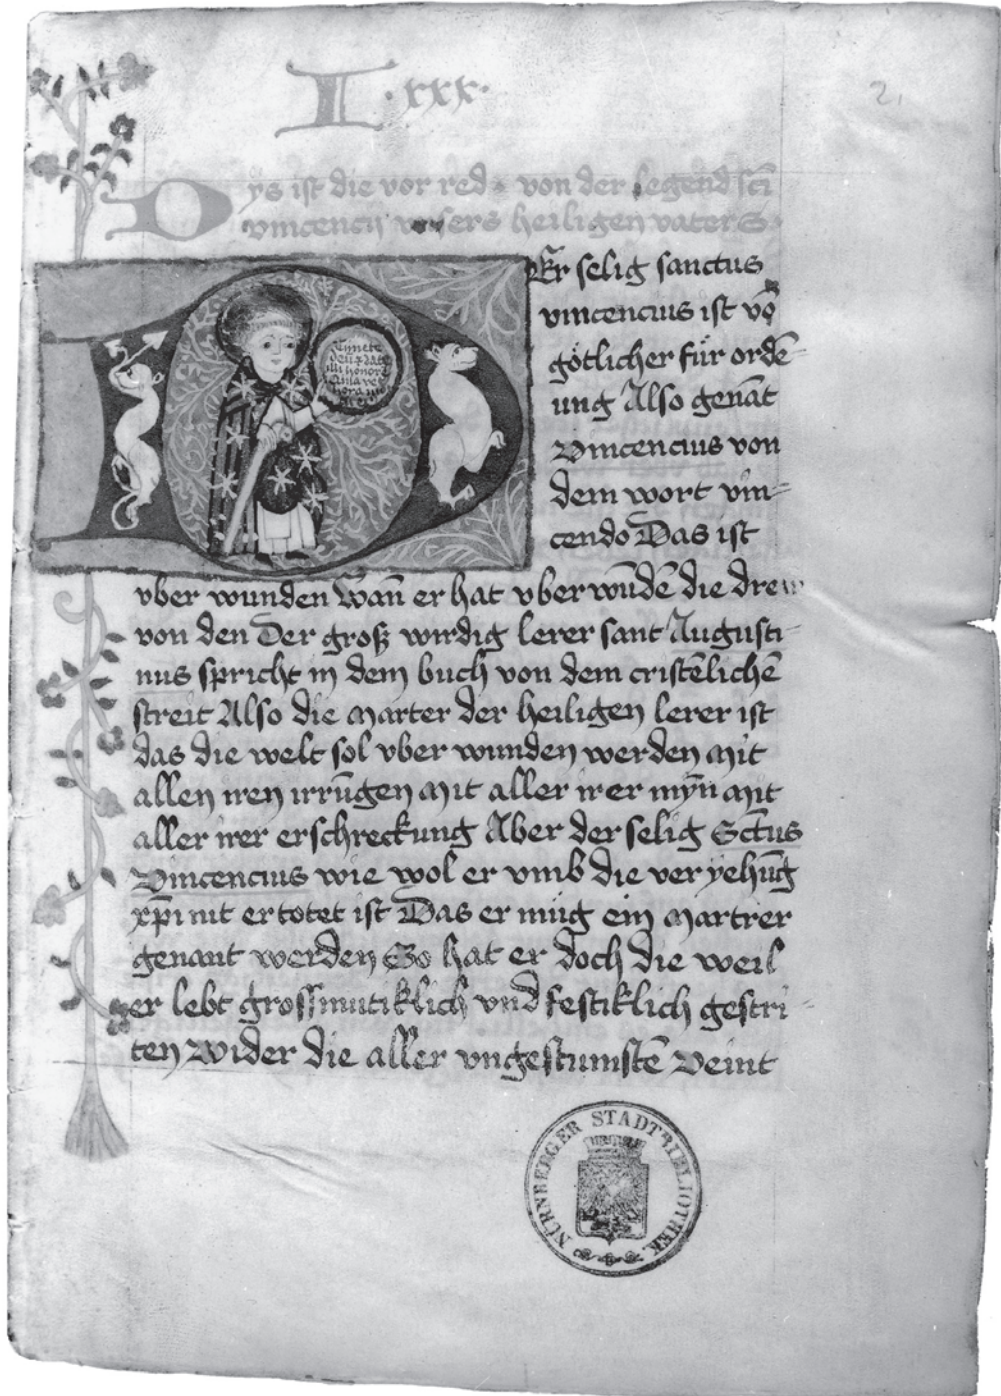 I · xxx ·
2,
Dys ist die vor red von der legend scī
vincencij vnsers heiligen vaters
Er selig sanctus
vincencius ist vō
götlicher für ordē-
ung Also genāt
Vincencius von
dem wort vin-
cendo Das ist
Timete
deū & date
illi honorē
quia ve
hora
vber wunden Wān er hat vber wūdē die drew
von den Der groß wirdig lerer sant Augusti-
nus spricht in dem buch von dem cristēlichē
streit Also die marter der heiligen lerer ist
das die welt sol vber wunden werden mit
allen iren irrūgen mit aller irer myn̄ mit
aller irer erschreckung Aber der selig Sctūs
Vincencius wie wol er vmb die ver yehūg
xp̄i nit ertotet ist Das er müg ein martrer
genant werden So hat er doch die weil
er lebt grossmutiklich vnd festiklich gestri-
ten wider die aller vngestumstē veint
NÜRNBERGER STADTBIBLIOTHEK